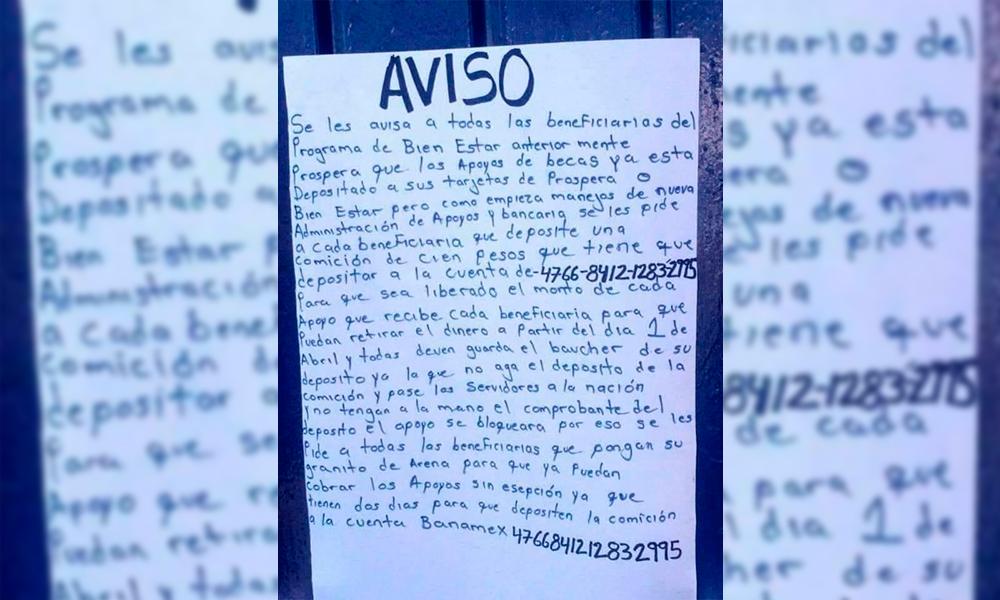 AVISO
Se les avisa a todas las beneficiarias del
Programa de Bien Estar anterior mente
Prospera que los Apoyos de becas ya esta
Depositado a sus tarjetas de Prospera o
Bien Estar pero como empieza manejos de nueva
Administración de Apoyos y bancaria se les pide
a cada beneficiaria que deposite una
comición de cien pesos que tiene que
depositar a la cuenta de-4766-8412-1283-2995
Para que sea liberado el monto de cada
Apoyo que recibe cada beneficiaria para que
Puedan retirar el dinero a Partir del dia 1 de
Abril y todas deven guarda el baucher de su
deposito ya la que no aga el deposito de la
comición y pase los Servidores a la nación
y no tengan a la mano el comprobante del
deposito el apoyo se bloqueara por eso se les
Pide a todas las beneficiarias que pongan su
granito de Arena para que ya Puedan
cobrar los Apoyos sin esepción ya que
tienen dos dias para que depositen la comición
a la cuenta Banamex 4766841212832995